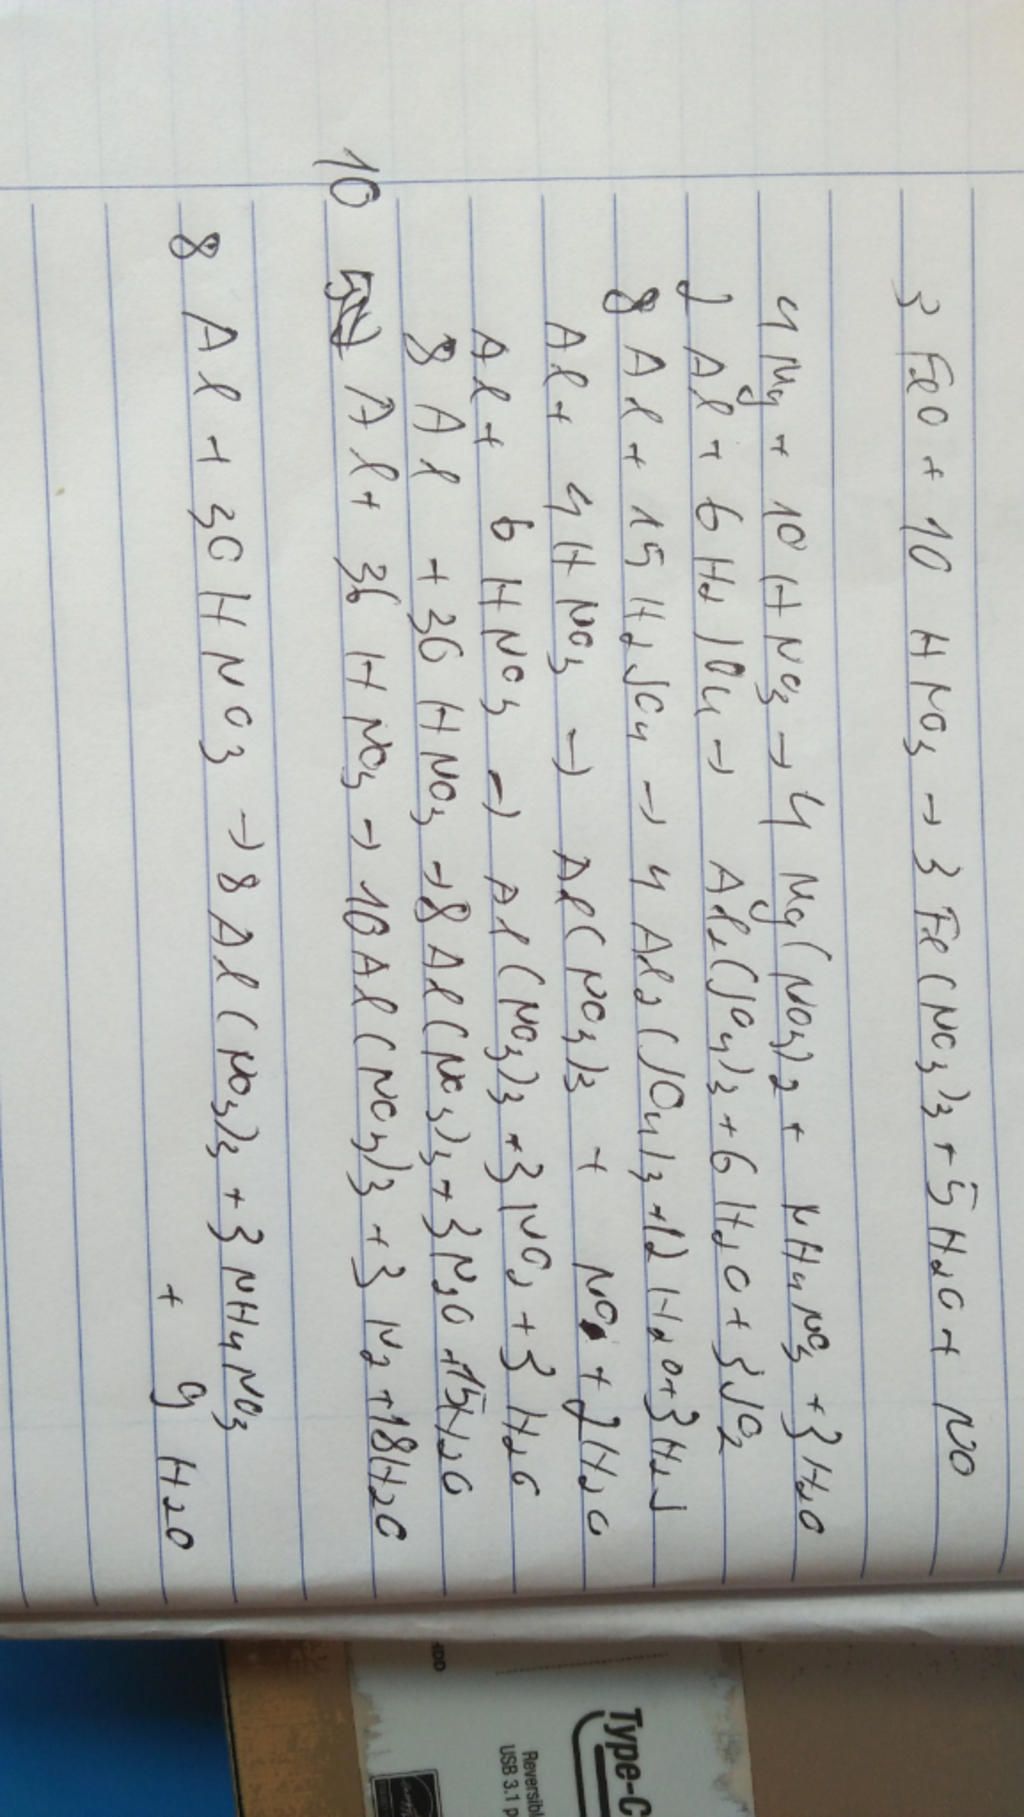 3 FeO + 10 HNO3 → 3 Fe(NO3)3 + 5 H2O + NO
4 Mg + 10 HNO3 → 4 Mg(NO3)2 + NH4NO3 + 3 H2O
2 Al + 6 H2SO4 → Al2(SO4)3 + 6 H2O + 3 SO2
8 Al + 15 H2SO4 → 4 Al2(SO4)3 + 12 H2O + 3 H2S
Al + 4 HNO3 → Al(NO3)3 + NO + 2 H2O
Al + 6 HNO3 → Al(NO3)3 + 3 NO2 + 3 H2O
8 Al + 30 HNO3 → 8 Al(NO3)3 + 3 N2O + 15 H2O
10 Al + 36 HNO3 → 10 Al(NO3)3 + 3 N2 + 18 H2O
8 Al + 30 HNO3 → 8 Al(NO3)3 + 3 NH4NO3
+ 9 H2O
Type-C
Reversibl
USB 3.1 p
HDD